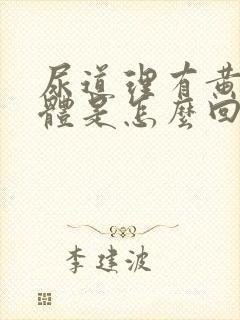 尿道裡有黃
體是怎麼回
李建波